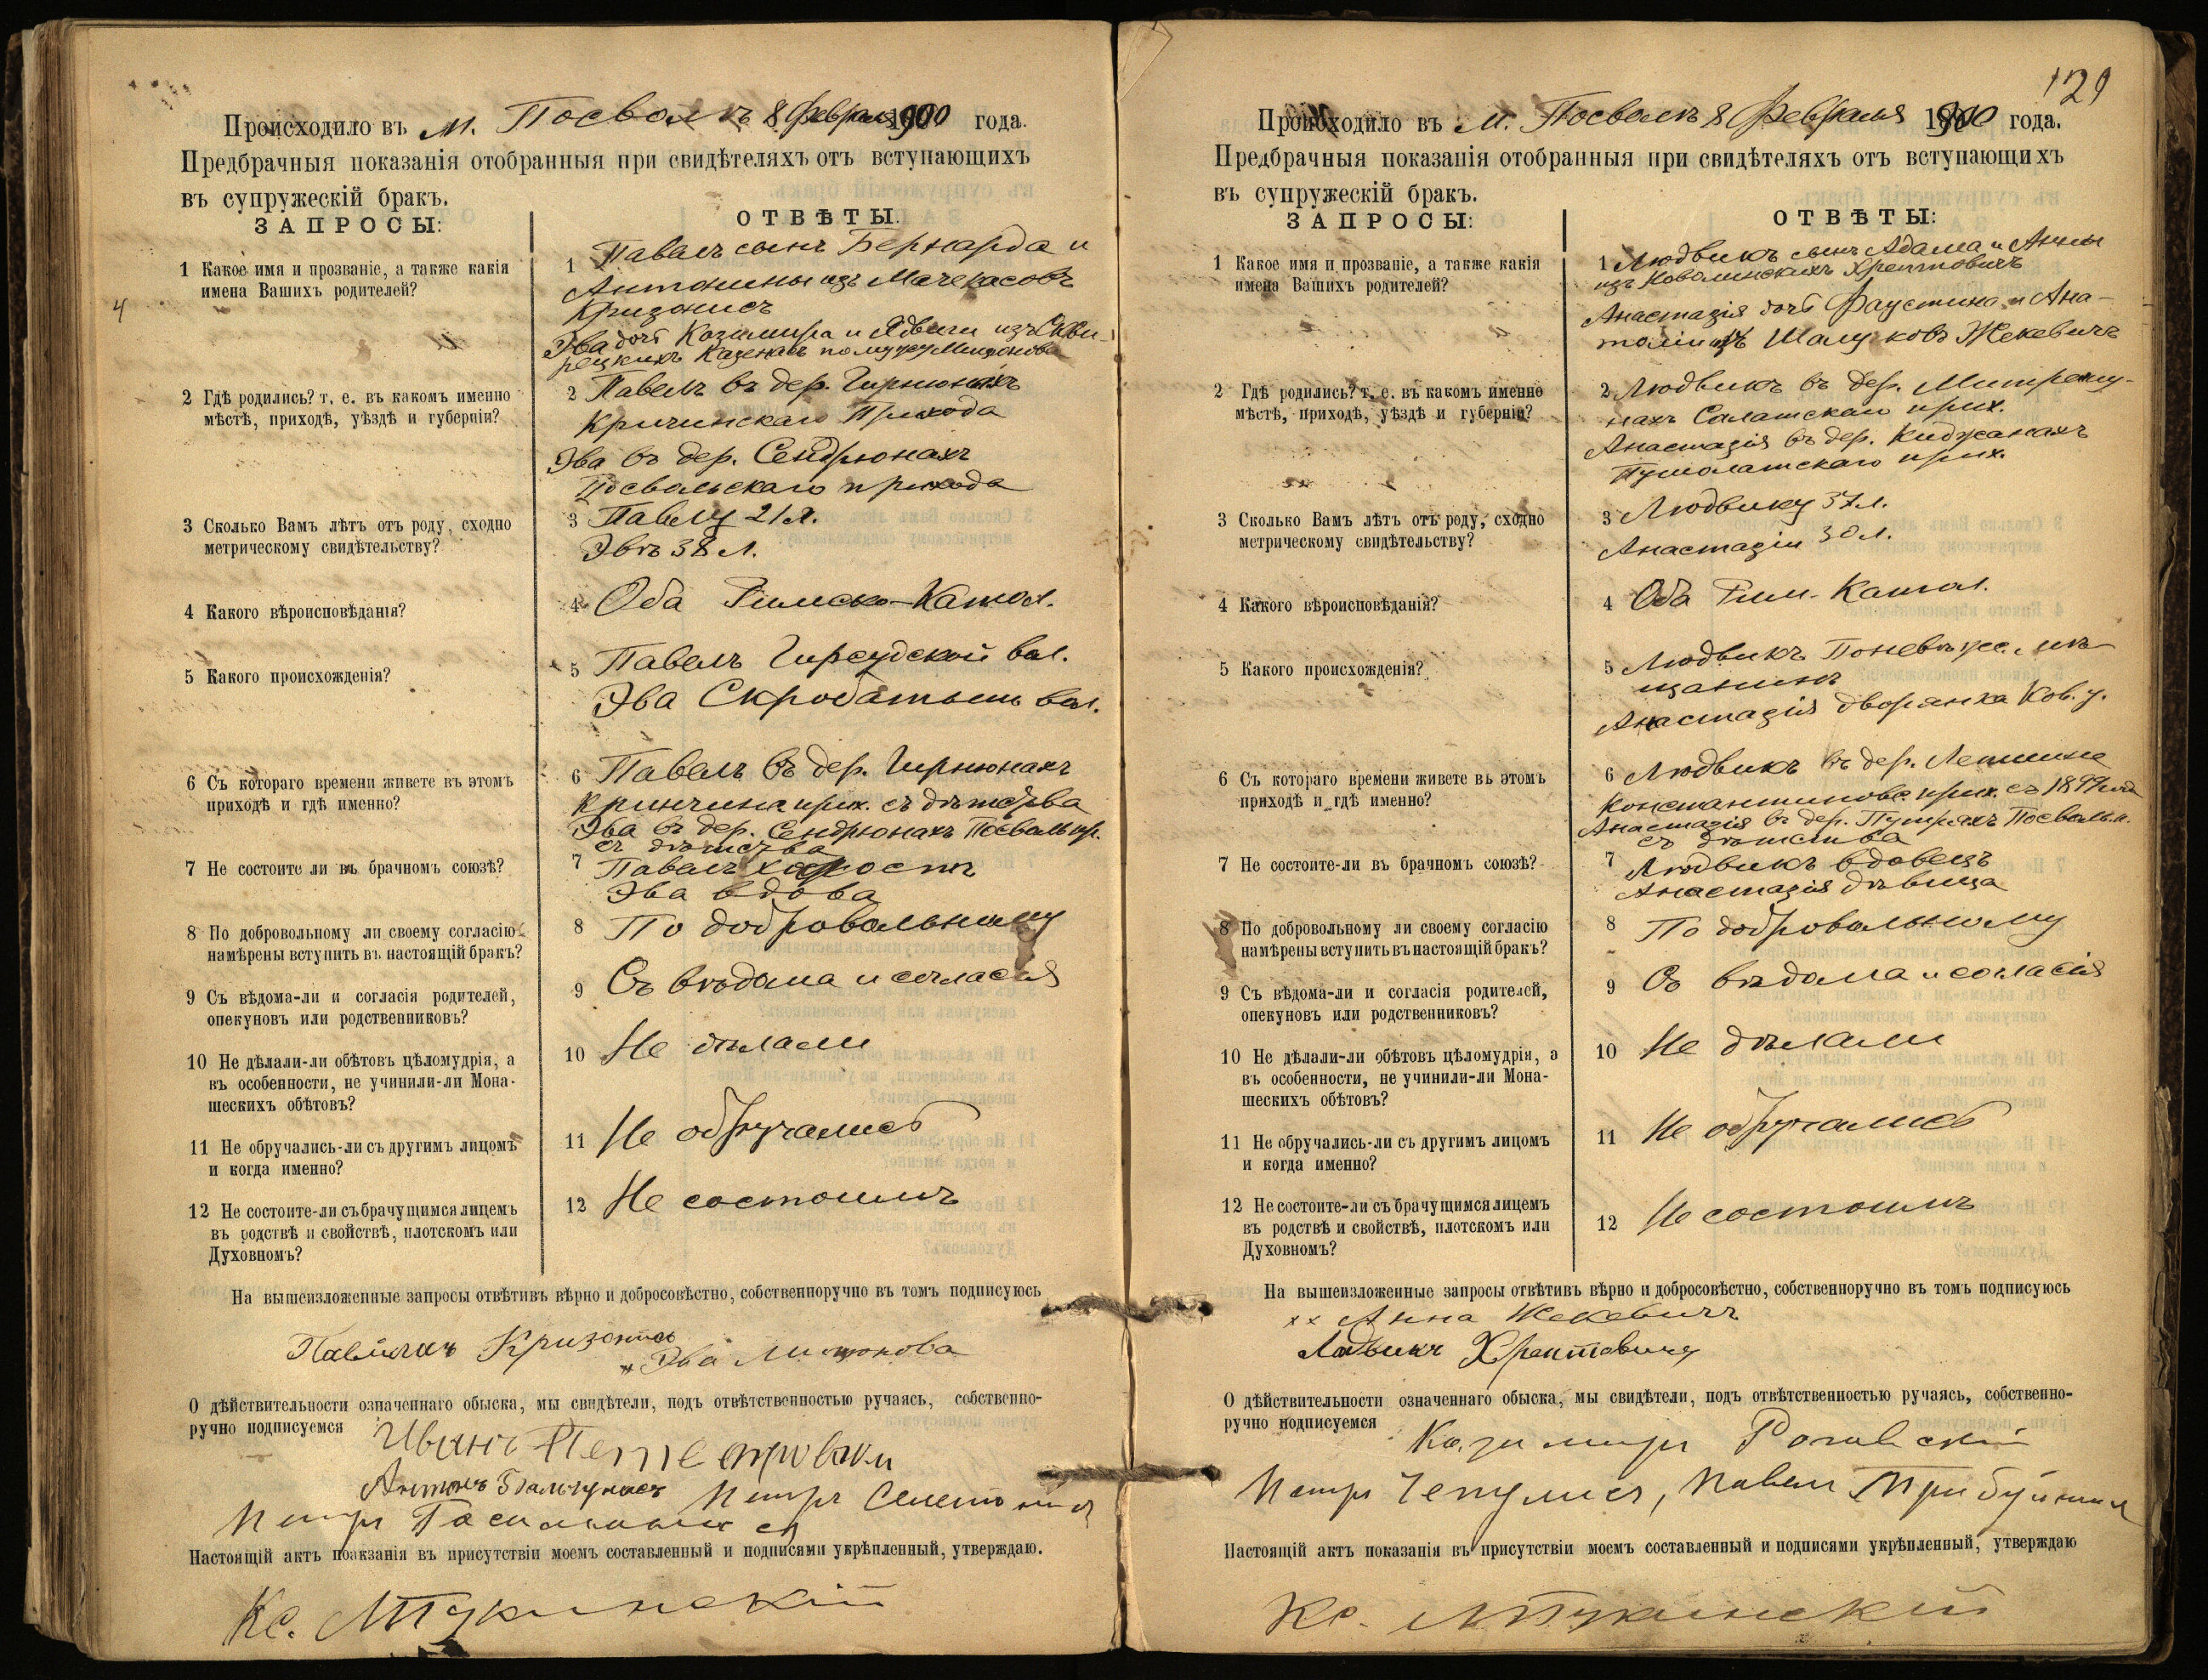 Происходило въ м. Посволѣ 8 Февраля 1900 года.
Предбрачныя показанія отобранныя при свидѣтеляхъ отъ вступающихъ
въ супружескій бракъ.
ЗАПРОСЫ:
ОТВѢТЫ.
1 Какое имя и прозваніе, а также какія
имена Вашихъ родителей?
1 Павелъ сынъ Бернарда и
Антонины изъ Мачекасовъ
Кризонисъ
Эва дочь Казимира и Ядвиги изъ
по мужу
4
2 Гдѣ родились? т. е. въ какомъ именно
мѣстѣ, приходѣ, уѣздѣ и губерніи?
2 Павелъ въ дер. Гирнюнахъ
Кричинскаго Прихода
Эва въ дер. Сендрюнахъ
Посвольскаго прихода
3 Сколько Вамъ лѣтъ отъ роду, сходно
метрическому свидѣтельству?
3 Павлу 21 л.
Эвѣ 38 л.
4 Какого вѣроисповѣданія?
4 Оба Римско-Катол.
5 Какого происхожденія?
5 Павелъ Гирсудской вол.
Эва Скробатыш. вол.
6 Съ котораго времени живете въ этомъ
приходѣ и гдѣ именно?
6 Павелъ въ дер. Гирнюнахъ
Кринчина прих. съ дѣтства
Эва въ дер. Сендрюнахъ Посволь. пр.
съ дѣтства
7 Не состоите ли въ брачномъ союзѣ?
7 Павелъ холостъ
Эва вдова
8 По добровольному ли своему согласію
намѣрены вступить въ настоящій бракъ?
8 По добровольному
9 Съ вѣдома-ли и согласія родителей,
опекуновъ или родственниковъ?
9 Съ вѣдома и согласія
10 Не дѣлали-ли обѣтовъ цѣломудрія, а
въ особенности, не учинили-ли Мона-
шескихъ обѣтовъ?
10 Не дѣлали
11 Не обручались-ли съ другимъ лицомъ
и когда именно?
11 Не обручались
12 Не состоите-ли съ брачущимся лицемъ
въ родствѣ и свойствѣ, плотскомъ или
Духовномъ?
12 Не состоимъ
На вышеизложенные запросы отвѣтивъ вѣрно и добросовѣстно, собственноручно въ томъ подписуюсь
Кризонисъ
Эва
О дѣйствительности означеннаго обыска, мы свидѣтели, подъ отвѣтственностью ручаясь, собственно-
ручно подписуемся
Иванъ
Антонъ Бальчунасъ Петръ
Петръ
Настоящій актъ поакзанія въ присутствіи моемъ составленный и подписями укрѣпленный, утверждаю.
Кс.
129
Происходило въ м. Посволѣ 8 Февраля 1900 года.
Предбрачныя показанія отобранныя при свидѣтеляхъ отъ вступающихъ
въ супружескій бракъ.
ЗАПРОСЫ:
ОТВѢТЫ:
1 Какое имя и прозваніе, а также какія
имена Вашихъ родителей?
1 Людвикъ сынъ Адама и Анны
изъ Ковалинскихъ Хрептовичъ
Анастазія дочь Фаустина и Ана-
толіи изъ Шалуковъ Жекевичъ
2 Гдѣ родились? т. е. въ какомъ именно
мѣстѣ, приходѣ, уѣздѣ и губерніи?
2 Людвикъ въ дер.
Салатскаго прих.
Анастазія въ дер. Киджанахъ
Пумпянскаго прих.
3 Сколько Вамъ лѣтъ отъ роду, сходно
метрическому свидѣтельству?
3 Людвику 37 л.
Анастазіи 30 л.
4 Какого вѣроисповѣданія?
4 Оба Рим. Катол.
5 Какого происхожденія?
5 Людвикъ Поневѣж. мѣ-
щанинъ
Анастазія дворянка Ков. у.
6 Съ котораго времени живете въ этомъ
приходѣ и гдѣ именно?
6 Людвикъ въ дер.
Константинов. прих. съ
Анастазія въ дер. Посвольск.
съ дѣтства
7 Не состоите-ли въ брачномъ союзѣ?
7 Людвикъ вдовецъ
Анастазія дѣвица
8 По добровольному ли своему согласію
намѣрены вступить въ настоящій бракъ?
8 По добровольному
9 Съ вѣдома-ли и согласія родителей,
опекуновъ или родственниковъ?
9 Съ вѣдома и согласія
10 Не дѣлали-ли обѣтовъ цѣломудрія, а
въ особенности, не учинили-ли Мона-
шескихъ обѣтовъ?
10 Не дѣлали
11 Не обручались-ли съ другимъ лицомъ
и когда именно?
11 Не обручались
12 Не состоите-ли съ брачущимся лицемъ
въ родствѣ и свойствѣ, плотскомъ или
Духовномъ?
12 Не состоимъ
На вышеизложенные запросы отвѣтивъ вѣрно и добросовѣстно, собственноручно въ томъ подписуюсь
хх Анна Жекевичъ
Хрептовичъ
О дѣйствительности означеннаго обыска, мы свидѣтели, подъ отвѣтственностью ручаясь, собственно-
ручно подписуемся
Казимиръ Рогавскій
Петръ Чепулисъ, Павелъ
Настоящій актъ показанія въ присутствіи моемъ составленный и подписями укрѣпленный, утверждаю
Кс.